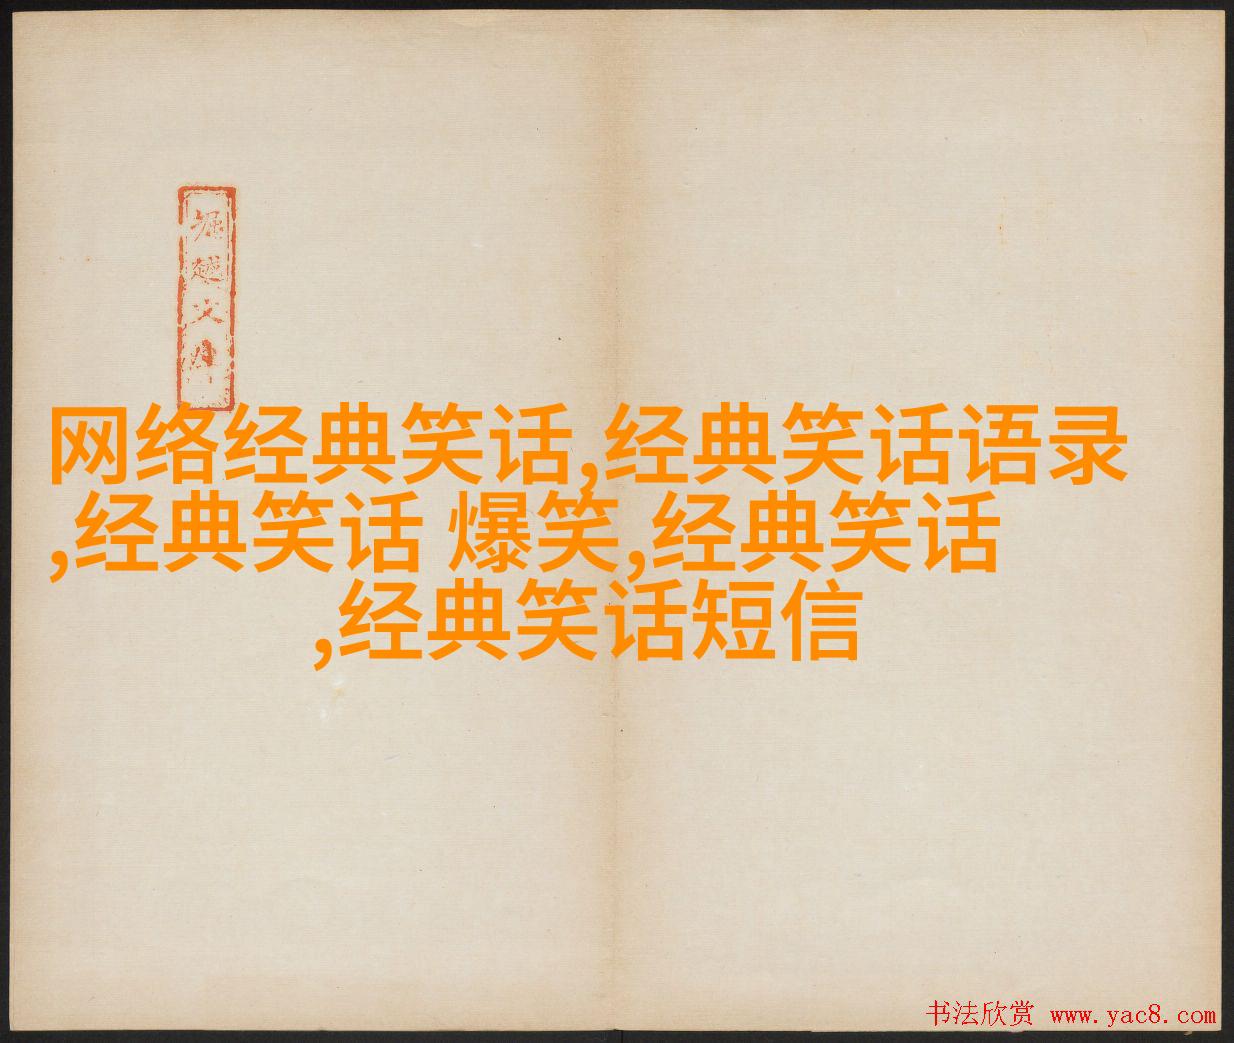 堀越文庫
网络经典笑话,经典笑话语录
,经典笑话 爆笑,经典笑话
,经典笑话短信
书法欣赏 www.yac8.com